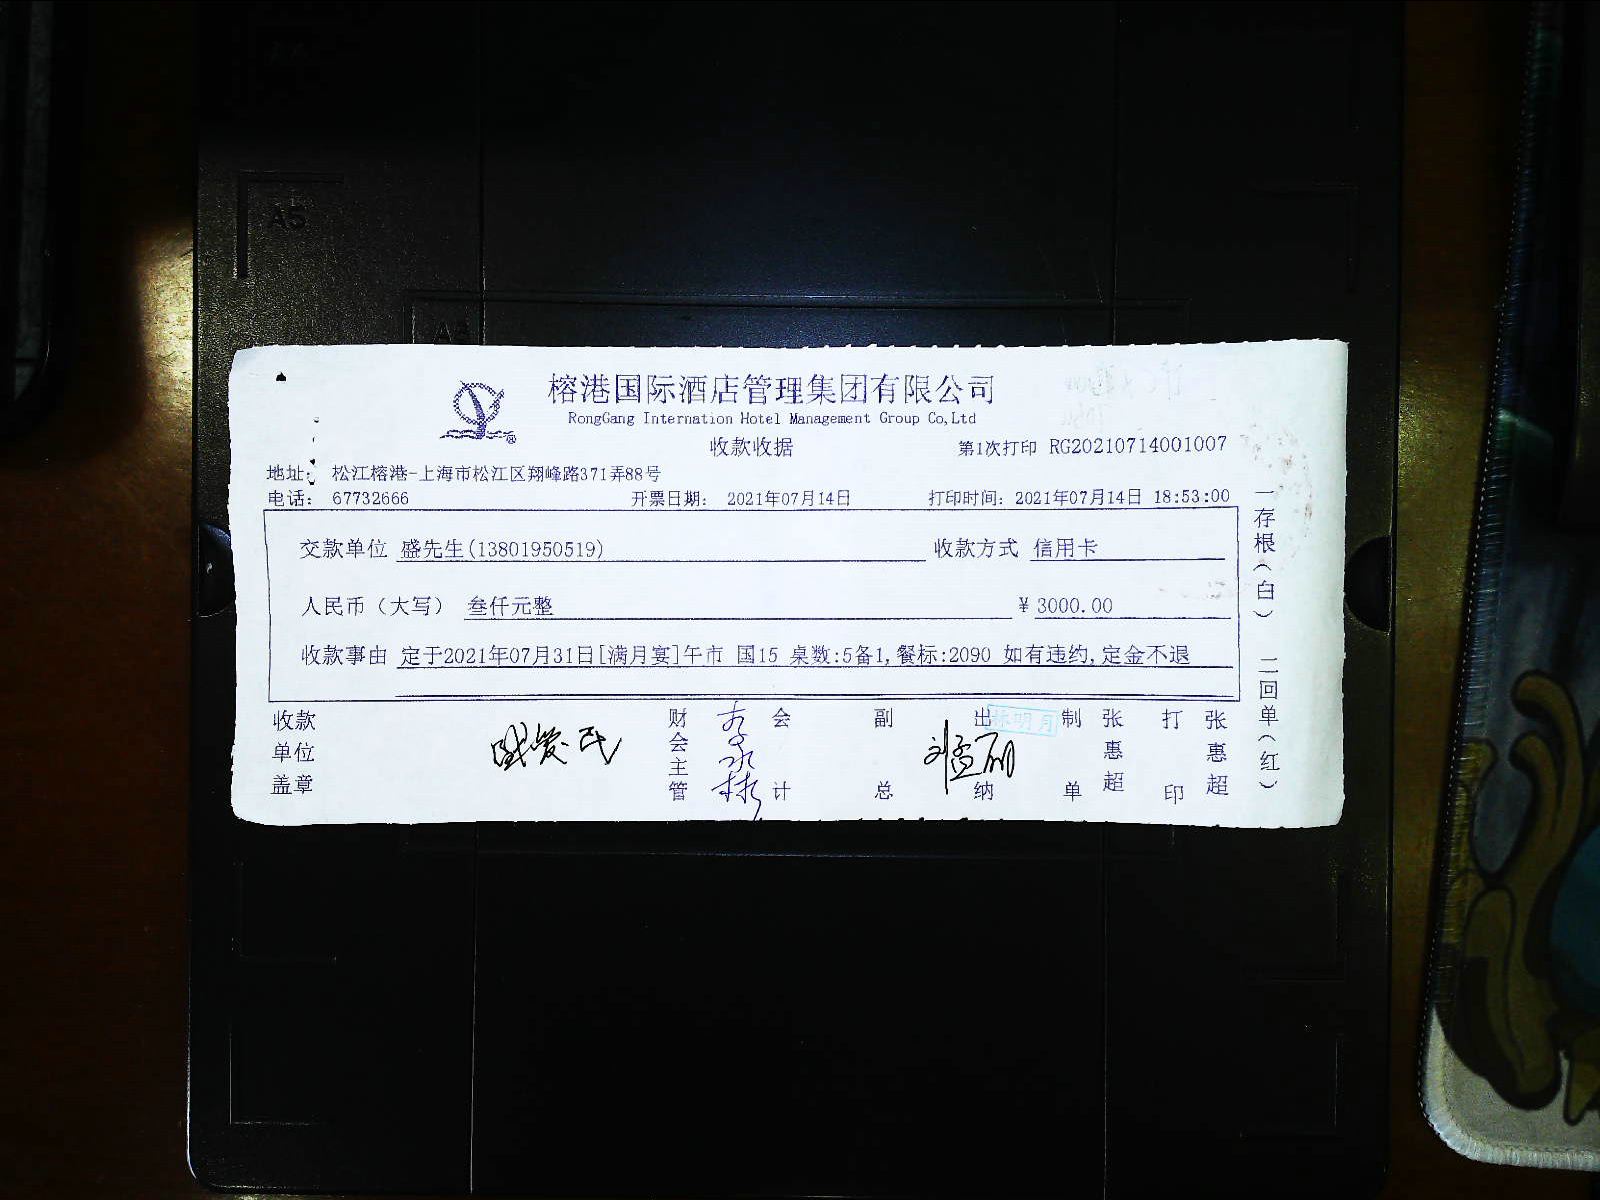 A5
榕港国际酒店管理集团有限公司
RongGang Internation Hotel Management Group Co,Ltd
收款收据
第1次打印 RG20210714001007
地址: 松江榕港-上海市松江区翔峰路371弄88号
电话: 67732666 开票日期: 2021年07月14日 打印时间: 2021年07月14日 18:53:00
交款单位 盛先生(13801950519) 收款方式 信用卡
人民币（大写） 叁仟元整 ¥ 3000.00
收款事由 定于2021年07月31日[满月宴]午市 国15 桌数:5备1,餐标:2090 如有违约,定金不退
收款单位盖章 财会主管 会计 副总 出纳 林明月 制单 张惠超 打印 张惠超
一存根（白） 二回单（红）